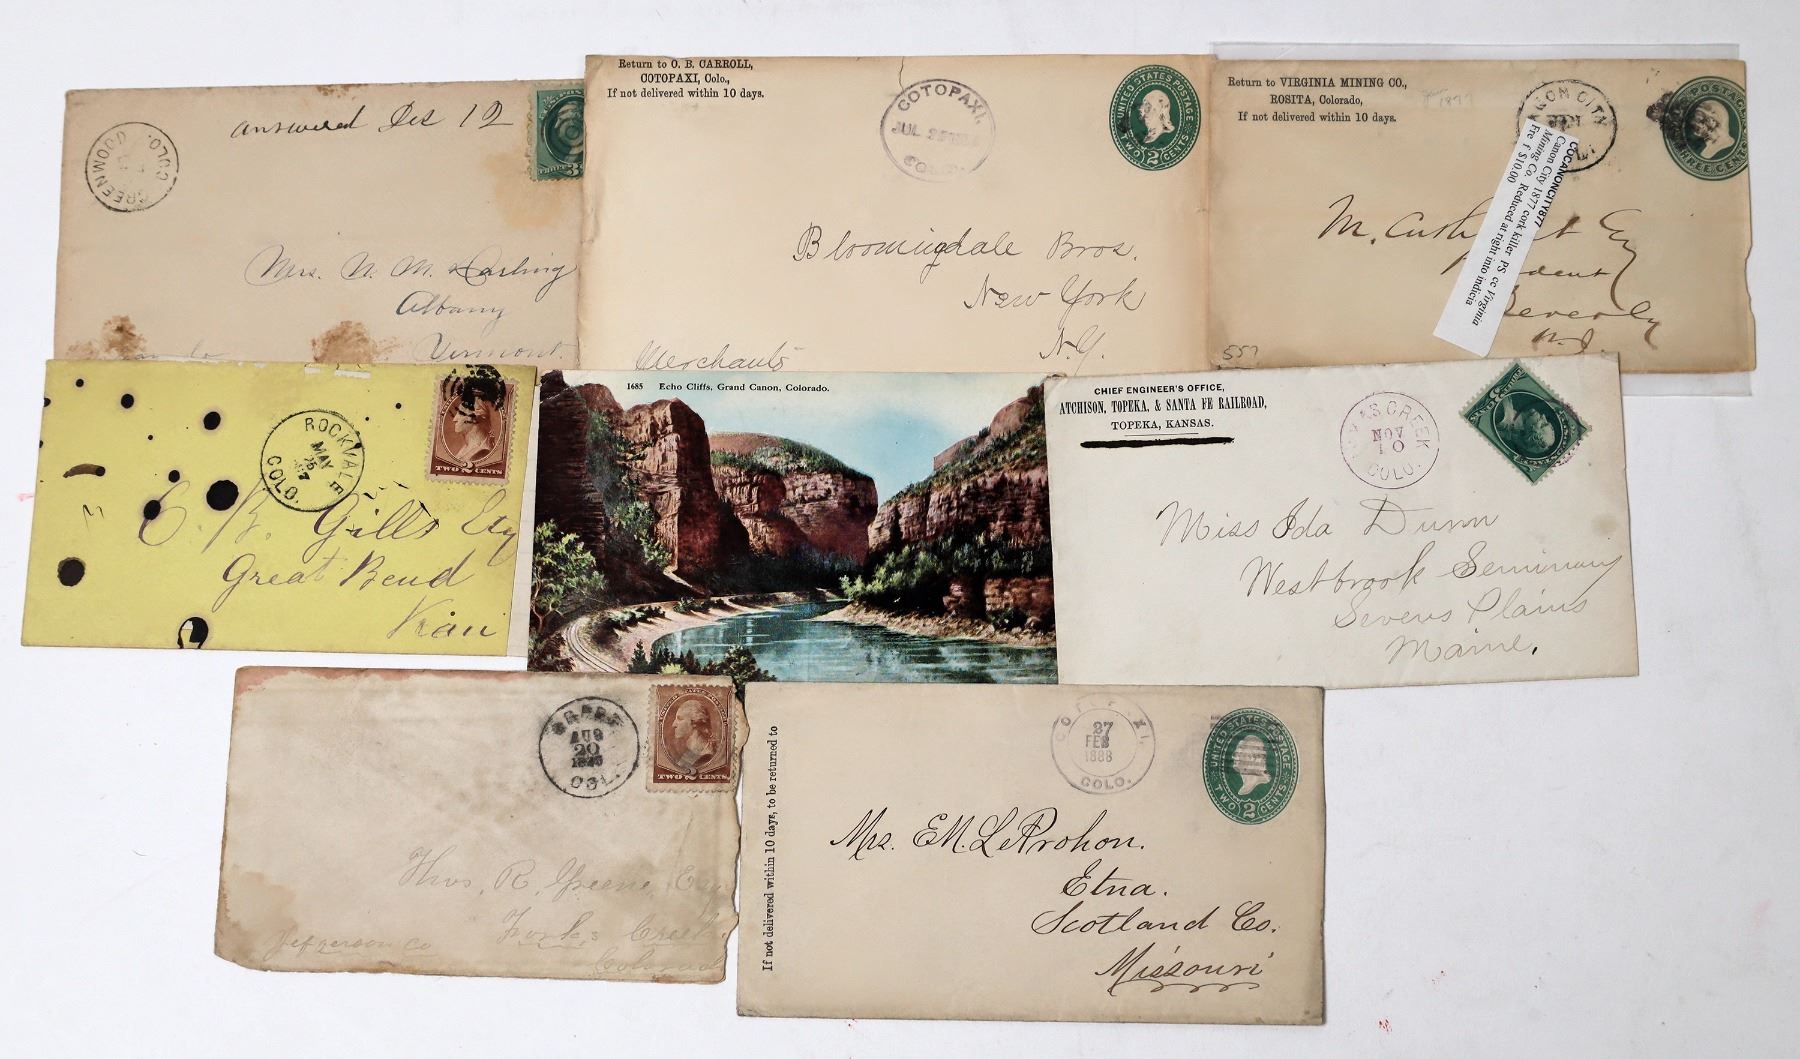 GREENWOOD
COLO.
answered Dec 12
Mrs. N. M. Darling
Albany
Vermont.
Return to O. B. CARROLL,
COTOPAXI, Colo.,
If not delivered within 10 days.
COTOPAXI,
JUL 25
COLO.
UNITED STATES POSTAGE
TWO 2 CENTS
Bloomingdale Bros.
New York
N.Y.
Merchants
Return to VIRGINIA MINING CO.,
ROSITA, Colorado,
If not delivered within 10 days.
1877
CANON CITY
POSTAGE
THREE CENTS
COCANONCITY877
Canon City 1877 cork killer PS cc Virginia
Mining Co. Reduced at right into indicia
$10.00
M.
Beverly
N.J.
557
ROCKVALE
MAY
COLO.
TWO 2 CENTS
E. B. Gills Esq
Great Bend
Kan
1685 Echo Cliffs, Grand Canon, Colorado.
CHIEF ENGINEER'S OFFICE,
ATCHISON, TOPEKA, & SANTA FE RAILROAD,
TOPEKA, KANSAS.
CREEK
NOV
10
COLO.
Miss Ida Dunn
Westbrook Seminary
Stevens Plains
Maine.
AUG
20
COL.
TWO 2 CENTS
Thos. R. Greene, Esq
Forks Creek
Jefferson Co
Colorado
If not delivered within 10 days, to be returned to
COTOPAXI,
27
FEB
1888
COLO.
UNITED STATES POSTAGE
TWO 2 CENTS
Mrs. E.M. LeProhon.
Etna.
Scotland Co.
Missouri